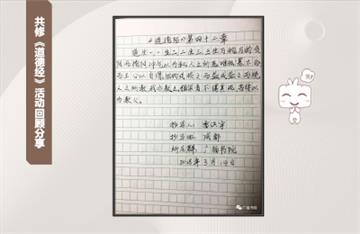 共修《道德经》活动回顾分享
《道德经》第四十二章
道生一,一生二,二生三,三生万物万物负
阴而抱阳,冲气以为和人之所恶唯孤寡不谷
而王公以自谓,故物或损之而益或益之而损
人之所教我亦教之,强梁者不得其死,吾将以
为教父。
抄写人:
抄写地:成都
所在群:书院